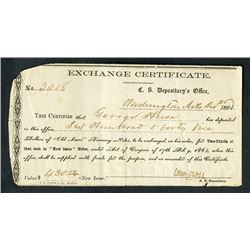 EXCHANGE CERTIFICATE.
No. 3015
C. S. Depositary's Office,
Washington Arks 1864.
THIS CERTIFIES that George has deposited
in this office, Six Hundred & forty five
Dollars of "Old Issue" Treasury Notes, to be exchanged, at his order, for Two-Thirds of
that sum in "New Issue" Notes, under Act of Congress of 17th Feb'y, 1864, when
with funds for the purpose, and on surrender of this Certificate
Value $430.00 New Issue.
C. S. Depositary